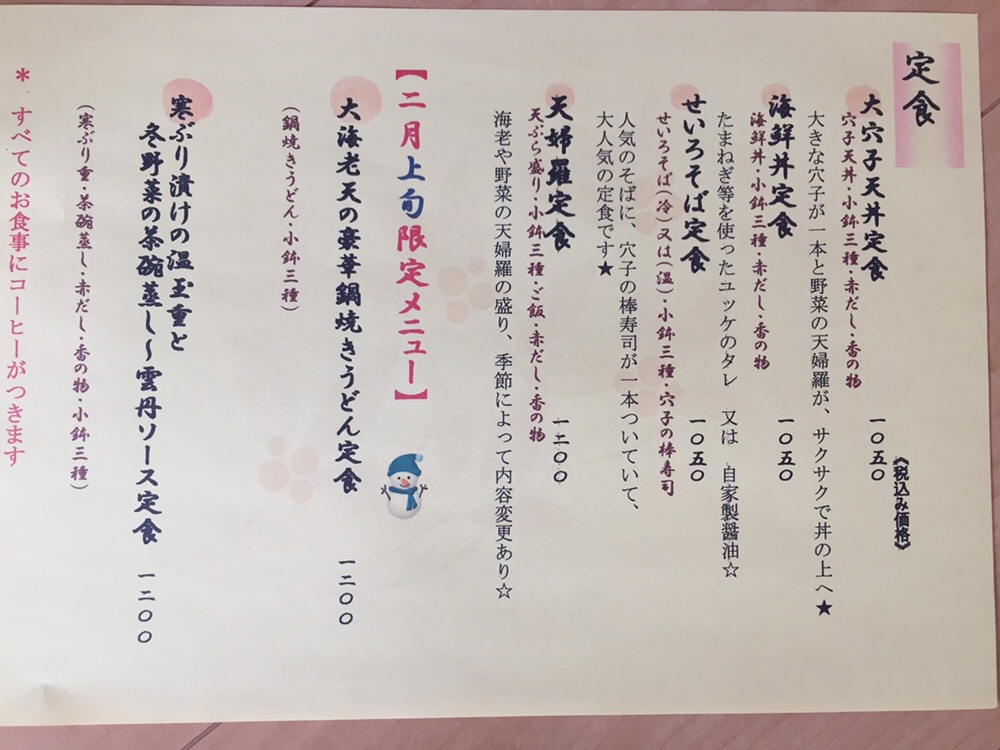 定食
《税込み価格》
大穴子天丼定食 一〇五〇
穴子天丼・小鉢三種・赤だし・香の物
大きな穴子が一本と野菜の天婦羅が、サクサクで丼の上へ★
海鮮丼定食 一〇五〇
海鮮丼・小鉢三種・赤だし・香の物
たまねぎ等を使ったユッケのタレ 又は 自家製醤油☆
せいろそば定食 一〇五〇
せいろそば(冷)又は(温)・小鉢三種・穴子の棒寿司
人気のそばに、穴子の棒寿司が一本ついていて、
大人気の定食です★
天婦羅定食 一二〇〇
天ぷら盛り・小鉢三種・ご飯・赤だし・香の物
海老や野菜の天婦羅の盛り、季節によって内容変更あり☆
【二月上旬限定メニュー】
大海老天の豪華鍋焼きうどん定食 一二〇〇
(鍋焼きうどん・小鉢三種)
寒ぶり漬けの温玉重と
冬野菜の茶碗蒸し～雲丹ソース定食 一二〇〇
(寒ぶり重・茶碗蒸し・赤だし・香の物・小鉢三種)
＊ すべてのお食事にコーヒーがつきます